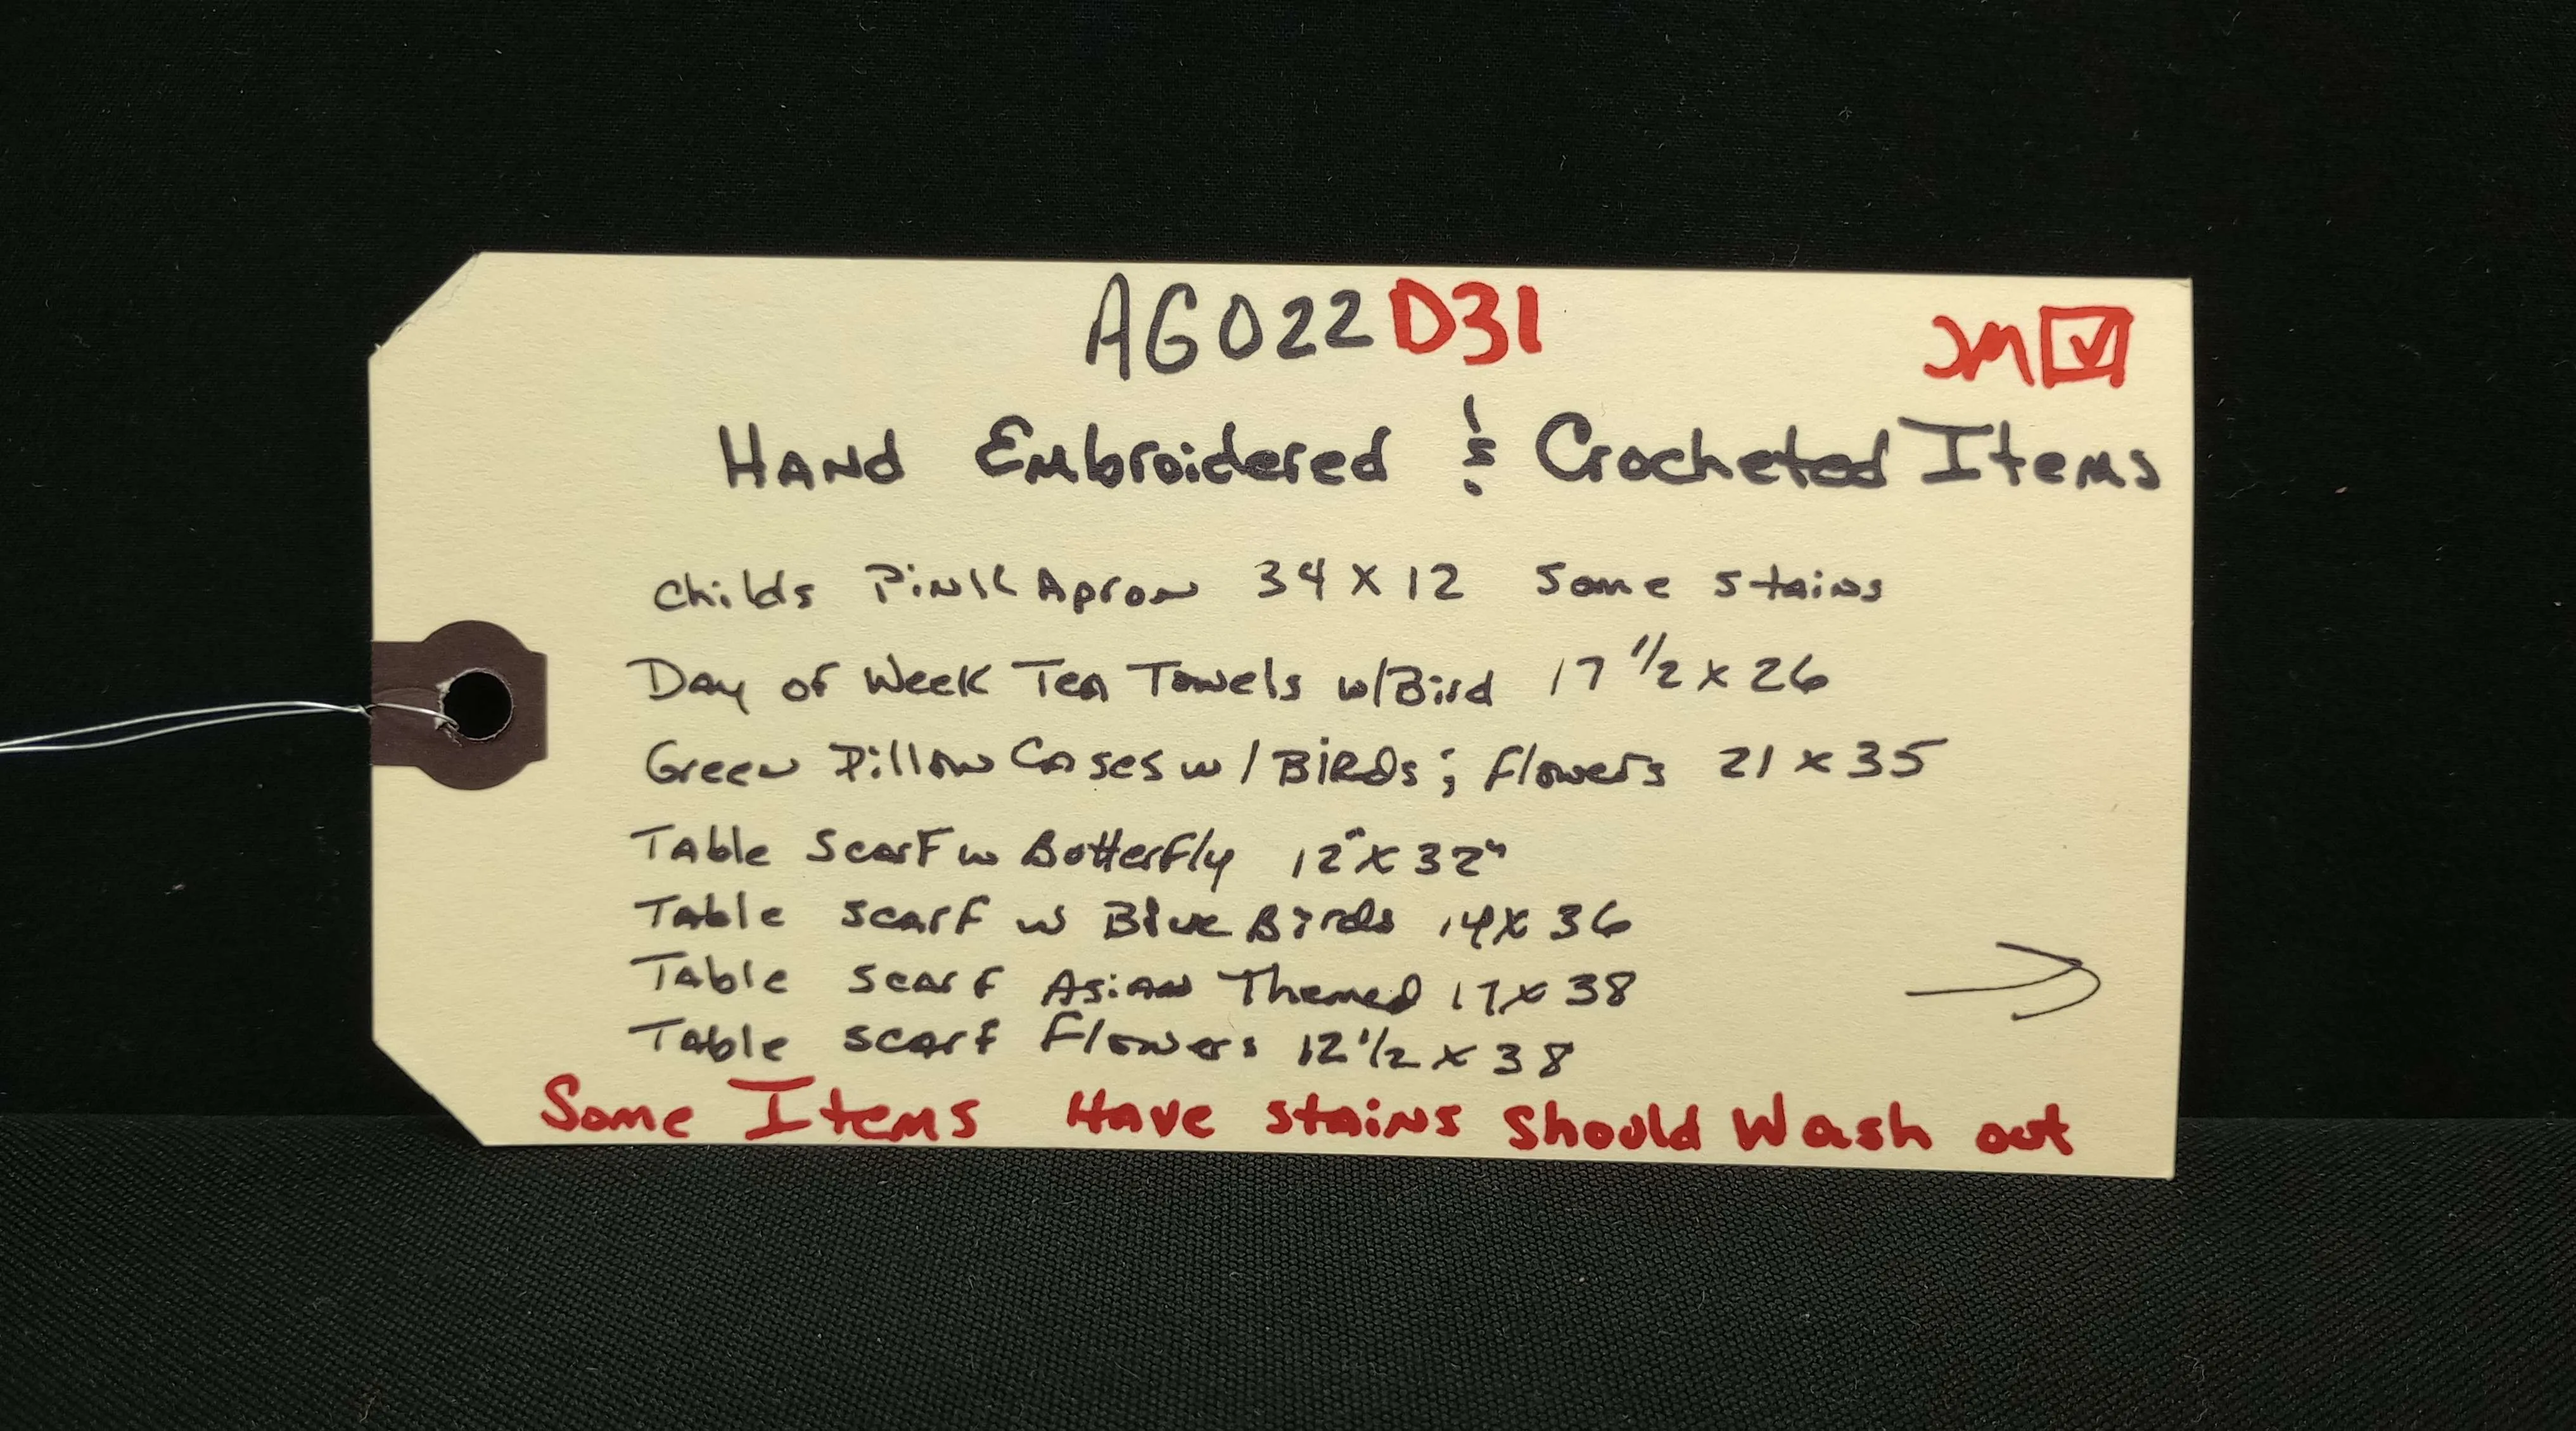 AG022D31 JM
Hand Embroidered & Crocheted Items
Childs Pink Apron 34 X 12 Some Stains
Day of Week Tea Towels w/Bird 17 1/2 x 26
Green Pillow Cases w/ BiRDs & flowers 21 x 35
Table Scarf w Butterfly 12" X 32"
Table scarf w Blue Birds 14 X 36
Table scarf Asian Themed 17 x 38
Table scarf Flowers 12 1/2 x 38
Some Items Have stains should Wash out